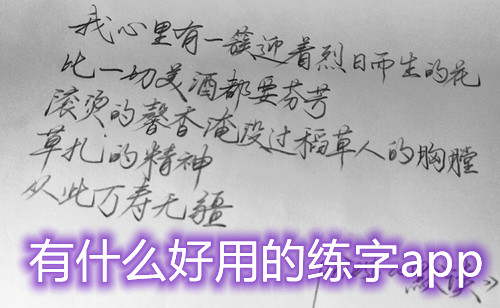 我心里有一簇迎着烈日而生的花
比一切美酒都要芬芳
滚烫的馨香淹没过稻草人的胸膛
草扎的精神
从此万寿无疆
有什么好用的练字app